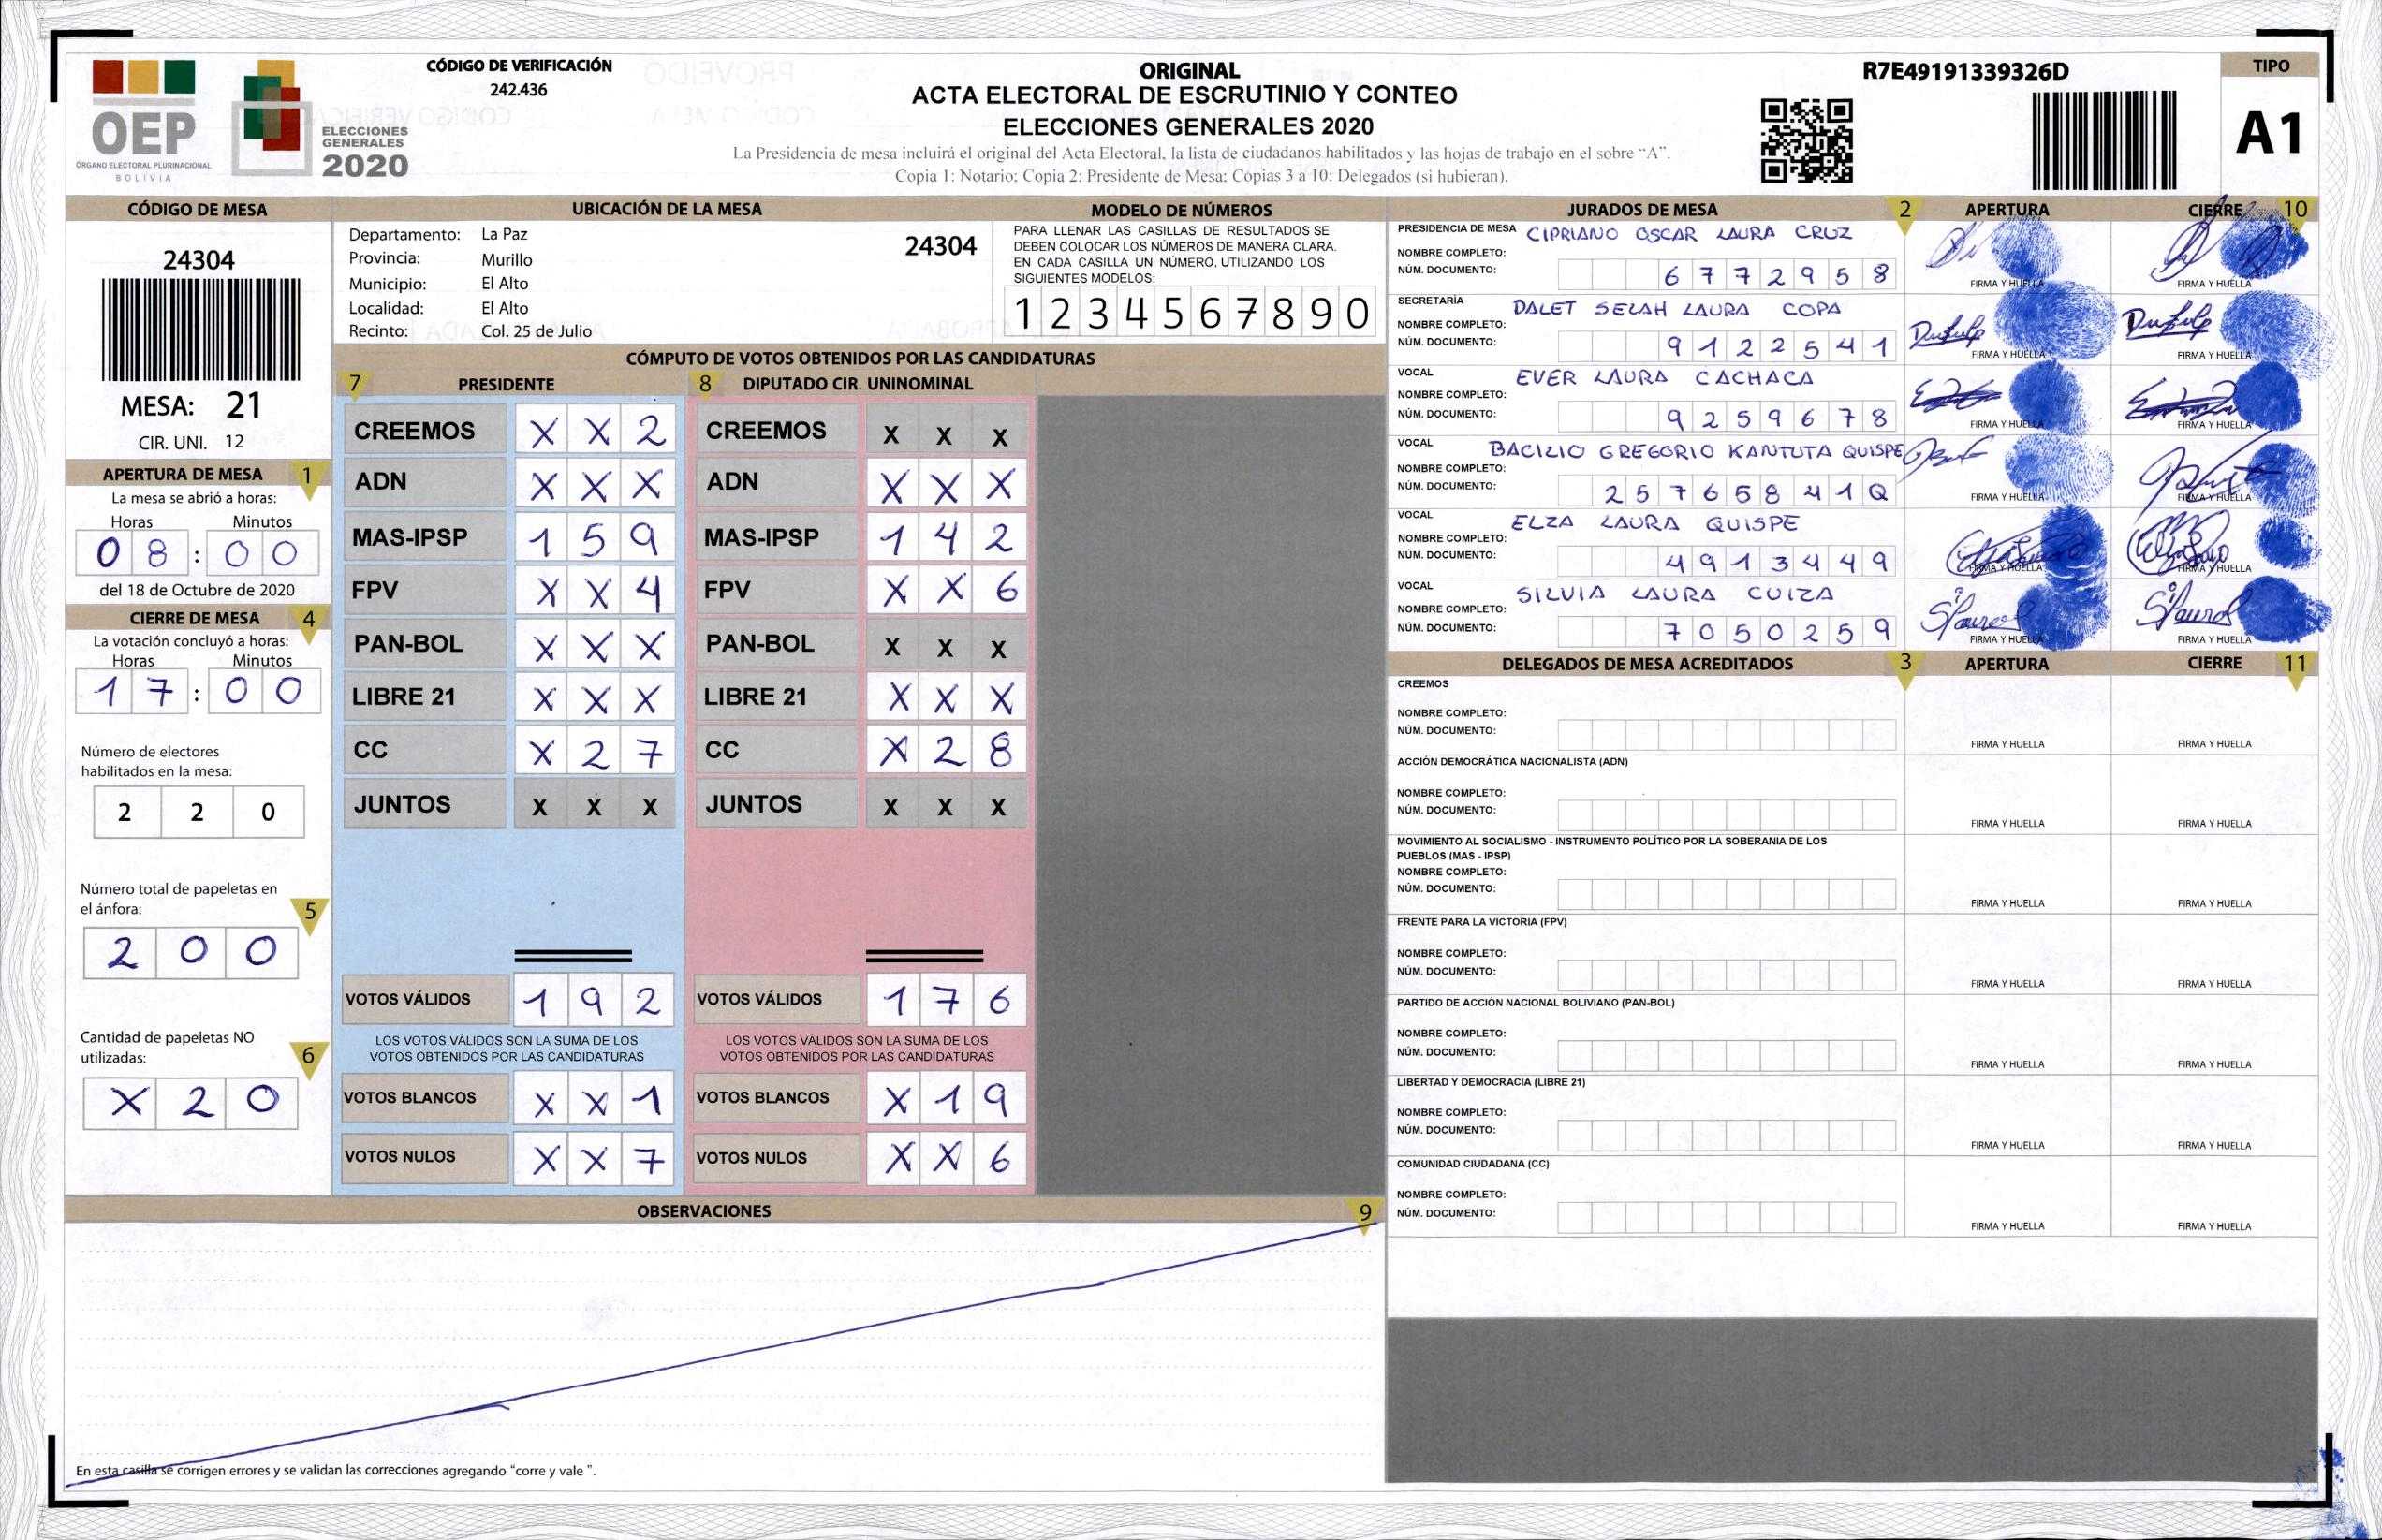 CÓDIGO DE VERIFICACIÓN
242.436
OEP
ÓRGANO ELECTORAL PLURINACIONAL
BOLIVIA
ELECCIONES
GENERALES
2020
ORIGINAL
ACTA ELECTORAL DE ESCRUTINIO Y CONTEO
ELECCIONES GENERALES 2020
La Presidencia de mesa incluirá el original del Acta Electoral, la lista de ciudadanos habilitados y las hojas de trabajo en el sobre “A”.
Copia 1: Notario: Copia 2: Presidente de Mesa: Copias 3 a 10: Delegados (si hubieran).
R7E49191339326D
TIPO
A1
CÓDIGO DE MESA
24304
MESA: 21
CIR. UNI. 12
UBICACIÓN DE LA MESA
Departamento: La Paz
Provincia: Murillo
Municipio: El Alto
Localidad: El Alto
Recinto: Col. 25 de Julio
24304
MODELO DE NÚMEROS
PARA LLENAR LAS CASILLAS DE RESULTADOS SE
DEBEN COLOCAR LOS NÚMEROS DE MANERA CLARA.
EN CADA CASILLA UN NÚMERO. UTILIZANDO LOS
SIGUIENTES MODELOS:
1 2 3 4 5 6 7 8 9 0
APERTURA DE MESA 1
La mesa se abrió a horas:
Horas Minutos
0 8 : 0 0
del 18 de Octubre de 2020
CIERRE DE MESA 4
La votación concluyó a horas:
Horas Minutos
1 7 : 0 0
Número de electores
habilitados en la mesa:
2 2 0
Número total de papeletas en
el ánfora: 5
2 0 0
Cantidad de papeletas NO
utilizadas: 6
X 2 0
CÓMPUTO DE VOTOS OBTENIDOS POR LAS CANDIDATURAS
7 PRESIDENTE 8 DIPUTADO CIR. UNINOMINAL
CREEMOS X X 2 CREEMOS X X X
ADN X X X ADN X X X
MAS-IPSP 1 5 9 MAS-IPSP 1 4 2
FPV X X 4 FPV X X 6
PAN-BOL X X X PAN-BOL X X X
LIBRE 21 X X X LIBRE 21 X X X
CC X 2 7 CC X 2 8
JUNTOS X X X JUNTOS X X X
VOTOS VÁLIDOS 1 9 2 VOTOS VÁLIDOS 1 7 6
LOS VOTOS VÁLIDOS SON LA SUMA DE LOS LOS VOTOS VÁLIDOS SON LA SUMA DE LOS
VOTOS OBTENIDOS POR LAS CANDIDATURAS VOTOS OBTENIDOS POR LAS CANDIDATURAS
VOTOS BLANCOS X X 1 VOTOS BLANCOS X 1 9
VOTOS NULOS X X 7 VOTOS NULOS X X 6
OBSERVACIONES 9
En esta casilla se corrigen errores y se validan las correcciones agregando “corre y vale ”.
JURADOS DE MESA 2 APERTURA CIERRE 10
PRESIDENCIA DE MESA CIPRIANO OSCAR LAURA CRUZ
NOMBRE COMPLETO:
NÚM. DOCUMENTO: 6 7 7 2 9 5 8 FIRMA Y HUELLA FIRMA Y HUELLA
SECRETARÍA DALET SELAH LAURA COPA
NOMBRE COMPLETO:
NÚM. DOCUMENTO: 9 1 2 2 5 4 1 FIRMA Y HUELLA FIRMA Y HUELLA
VOCAL EVER LAURA CACHACA
NOMBRE COMPLETO:
NÚM. DOCUMENTO: 9 2 5 9 6 7 8 FIRMA Y HUELLA FIRMA Y HUELLA
VOCAL BACILIO GREGORIO KANTUTA QUISPE
NOMBRE COMPLETO:
NÚM. DOCUMENTO: 2 5 7 6 5 8 4 1 Q FIRMA Y HUELLA FIRMA Y HUELLA
VOCAL ELZA LAURA QUISPE
NOMBRE COMPLETO:
NÚM. DOCUMENTO: 4 9 1 3 4 4 9 FIRMA Y HUELLA FIRMA Y HUELLA
VOCAL SILVIA LAURA CUIZA
NOMBRE COMPLETO:
NÚM. DOCUMENTO: 7 0 5 0 2 5 9 FIRMA Y HUELLA FIRMA Y HUELLA
DELEGADOS DE MESA ACREDITADOS 3 APERTURA CIERRE 11
CREEMOS
NOMBRE COMPLETO:
NÚM. DOCUMENTO: FIRMA Y HUELLA FIRMA Y HUELLA
ACCIÓN DEMOCRÁTICA NACIONALISTA (ADN)
NOMBRE COMPLETO:
NÚM. DOCUMENTO: FIRMA Y HUELLA FIRMA Y HUELLA
MOVIMIENTO AL SOCIALISMO - INSTRUMENTO POLÍTICO POR LA SOBERANIA DE LOS
PUEBLOS (MAS - IPSP)
NOMBRE COMPLETO:
NÚM. DOCUMENTO: FIRMA Y HUELLA FIRMA Y HUELLA
FRENTE PARA LA VICTORIA (FPV)
NOMBRE COMPLETO:
NÚM. DOCUMENTO: FIRMA Y HUELLA FIRMA Y HUELLA
PARTIDO DE ACCIÓN NACIONAL BOLIVIANO (PAN-BOL)
NOMBRE COMPLETO:
NÚM. DOCUMENTO: FIRMA Y HUELLA FIRMA Y HUELLA
LIBERTAD Y DEMOCRACIA (LIBRE 21)
NOMBRE COMPLETO:
NÚM. DOCUMENTO: FIRMA Y HUELLA FIRMA Y HUELLA
COMUNIDAD CIUDADANA (CC)
NOMBRE COMPLETO:
NÚM. DOCUMENTO: FIRMA Y HUELLA FIRMA Y HUELLA